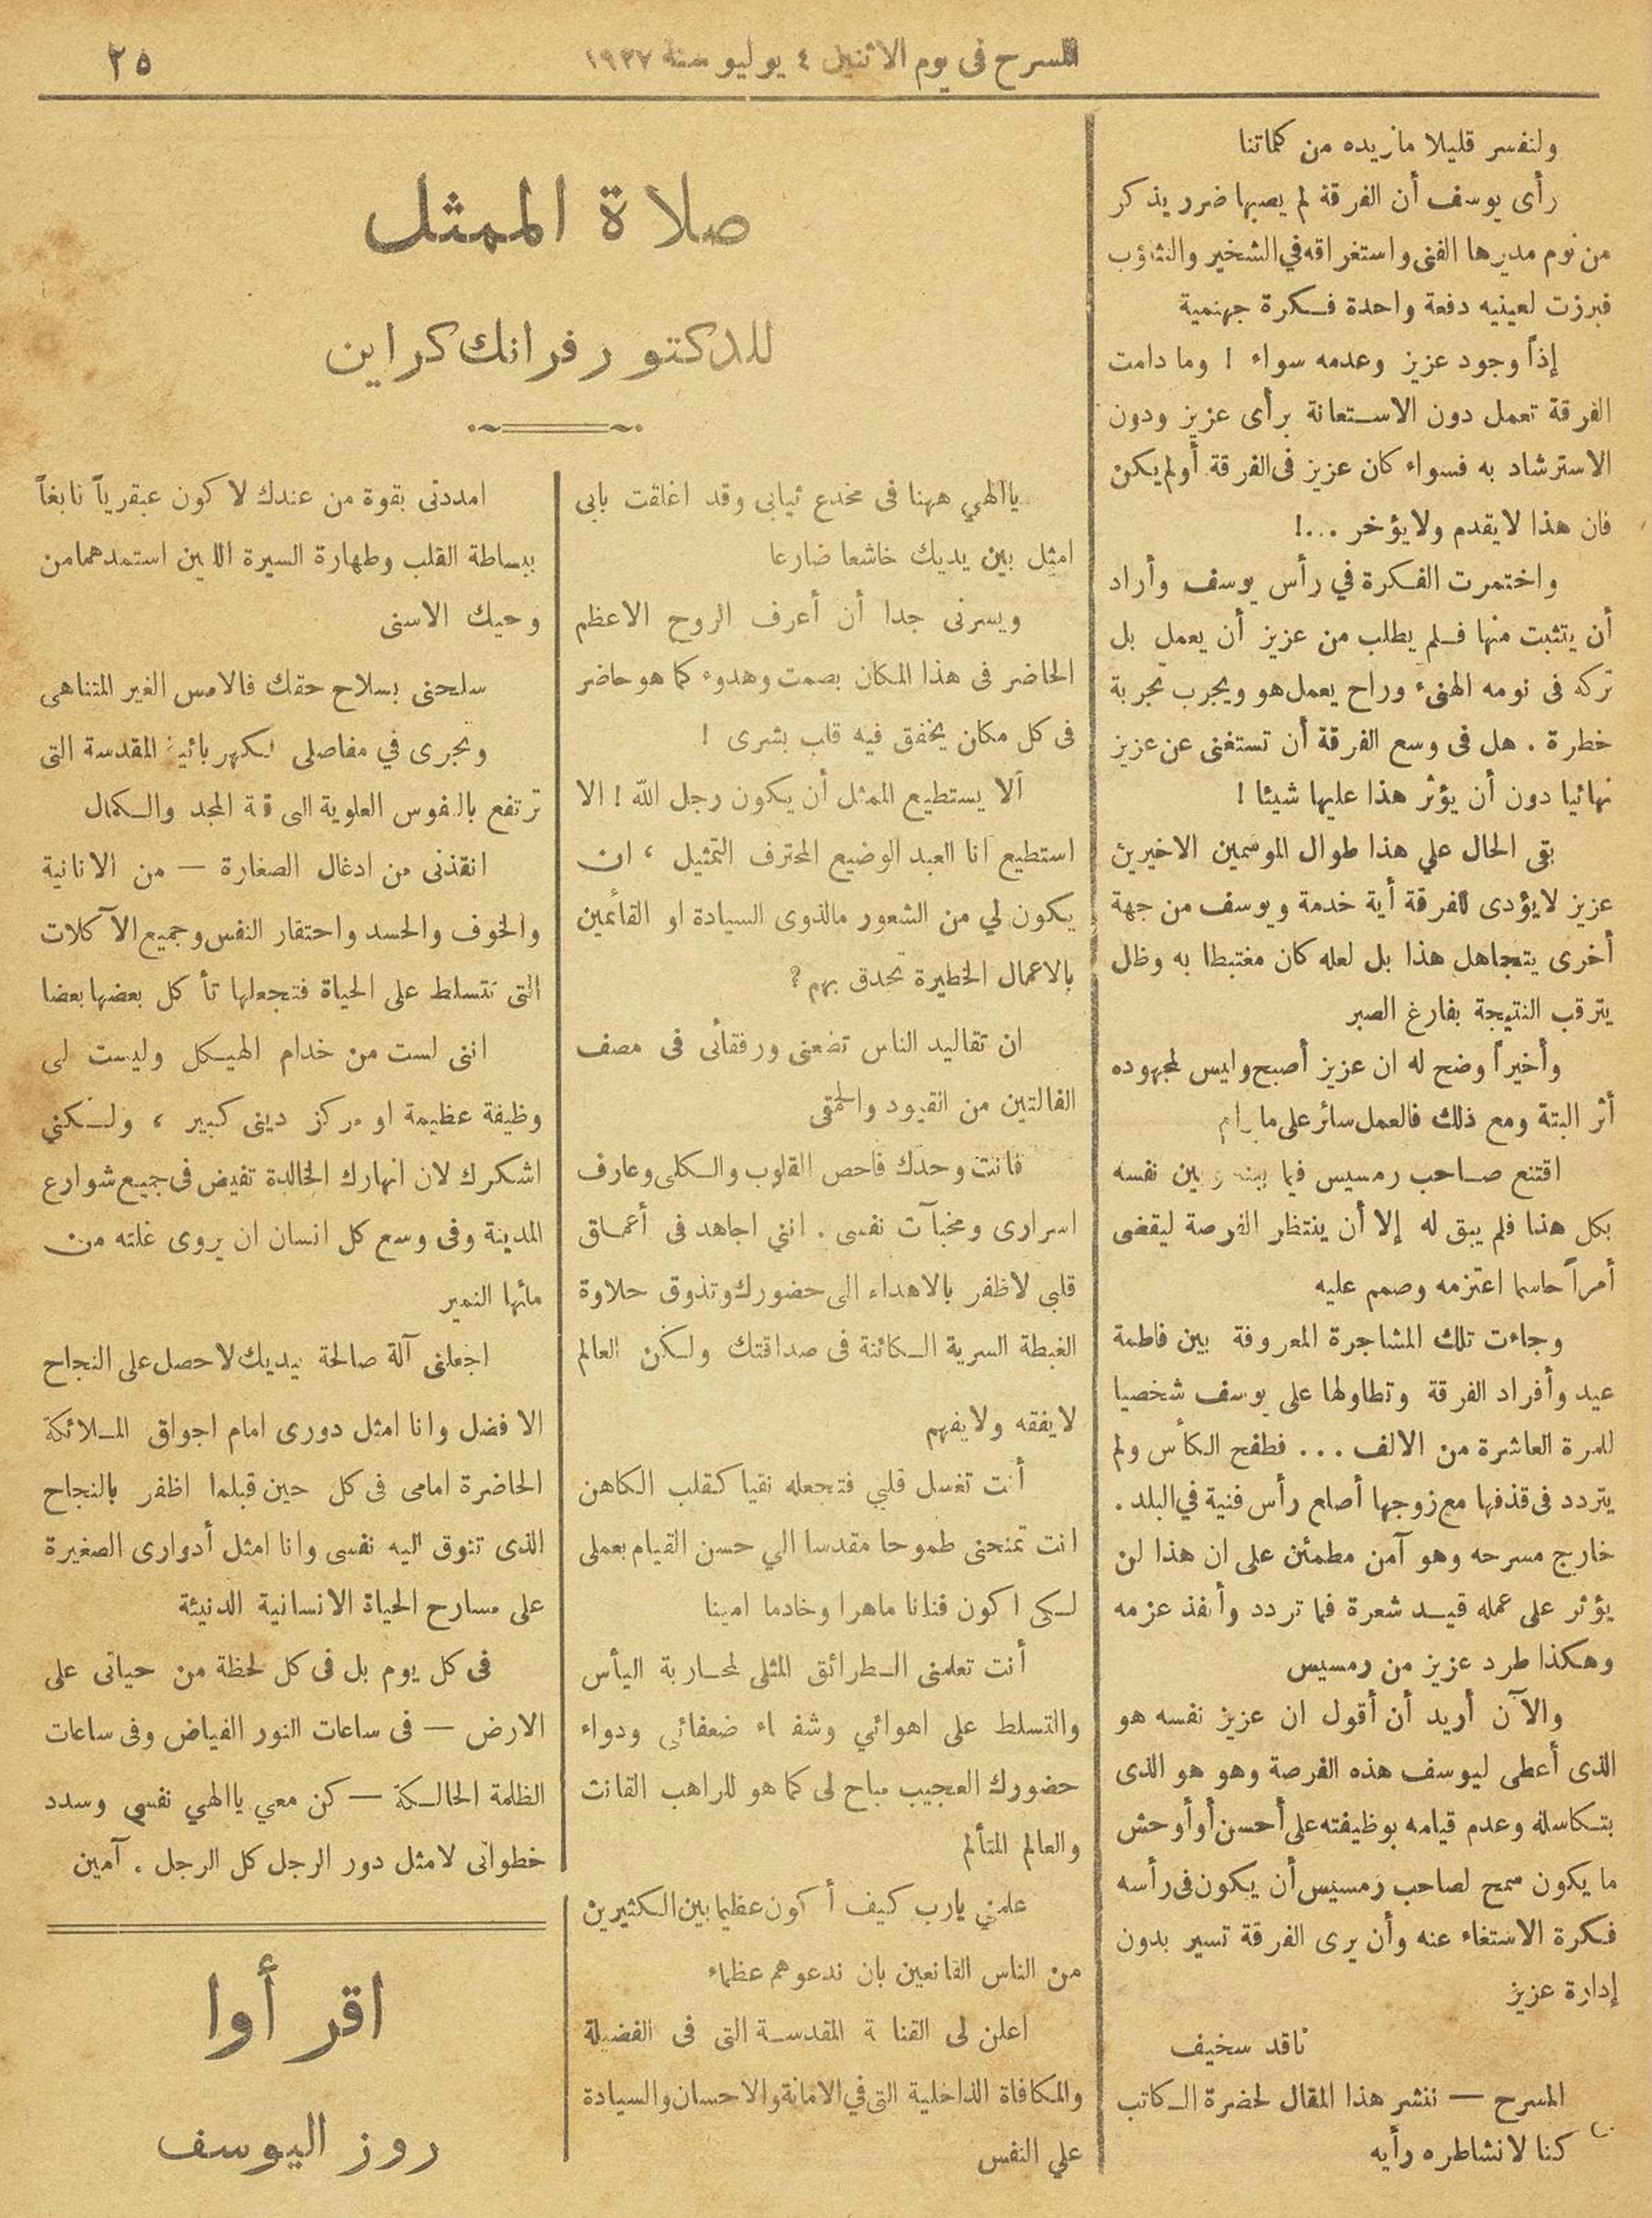 المسرح في يوم الاثنين ٤ يوليو سنة ١٩٢٧
٢٥
ولنفسر قليلا مانريده من كلماتنا
رأى يوسف أن الفرقة لم يصبها ضرر يذكر
من نوم مديرها الفنى واستغراقه في الشخير والتثاؤب
فبرزت لعينيه دفعة واحدة فكرة جهنمية
إذاً وجود عزيز وعدمه سواء ! وما دامت
الفرقة تعمل دون الاستعانة برأى عزيز ودون
الاسترشاد به فسواء كان عزيز فى الفرقة أولم يكن
فان هذا لايقدم ولايؤخر ...!
واختمرت الفكرة في رأس يوسف وأراد
أن يتثبت منها فلم يطلب من عزيز أن يعمل بل
تركه فى نومه الهنىء وراح يعمل هو ويجرب تجربة
خطرة . هل فى وسع الفرقة أن تستغنى عن عزيز
نهائيا دون أن يؤثر هذا عليها شيئا !
بقى الحال علي هذا طوال الموسمين الاخيرين
عزيز لايؤدى للفرقة أية خدمة ويوسف من جهة
أخرى يتجاهل هذا بل لعله كان مغتبطا به وظل
يترقب النتيجة بفارغ الصبر
وأخيراً وضح له ان عزيز أصبح وليس لمجهوده
أثر البتة ومع ذلك فالعمل سائر على ما يرام
اقتنع صاحب رمسيس فيما بينه وبين نفسه
بكل هذا فلم يبق له إلا أن ينتظر الفرصة ليقضى
أمراً حاسما اعتزمه وصمم عليه
وجاءت تلك المشاجرة المعروفة بين فاطمة
عيد وأفراد الفرقة وتطاولها على يوسف شخصيا
للمرة العاشرة من الالف ... فطفح الكأس ولم
يتردد فى قذفها مع زوجها أصلع رأس فنية في البلد .
خارج مسرحه وهو آمن مطمئن على ان هذا لن
يؤثر على عمله قيد شعرة فما تردد وأنفذ عزمه
وهكذا طرد عزيز من رمسيس
والآن أريد أن أقول ان عزيز نفسه هو
الذى أعطى ليوسف هذه الفرصة وهو هو الذى
بتكاسله وعدم قيامه بوظيفته على أحسن أو أوحش
ما يكون سمح لصاحب رمسيس أن يكون فى رأسه
فكرة الاستغاء عنه وأن يرى الفرقة تسير بدون
إدارة عزيز
ناقد سخيف
المسرح — ننشر هذا المقال لحضرة الكاتب
كنا لانشاطره رأيه
صلاة الممثل
للدكتور فرانك كراين
ياالهي ههنا فى مخدع ثيابى وقد اغلقت بابى
امثل بين يديك خاشعا ضارعا
ويسرنى جدا أن أعرف الروح الاعظم
الحاضر فى هذا المكان بصمت وهدوء كما هو حاضر
فى كل مكان يخفق فيه قلب بشرى !
ألا يستطيع الممثل أن يكون رجل الله ! الا
استطيع انا العبد الوضيع المحترف التمثيل ، ان
يكون لي من الشعور مالذوى السيادة او القائمين
بالاعمال الخطيرة تحدق بهم ؟
ان تقاليد الناس تضعنى ورفقائى فى مصف
الفالتين من القيود والحمقى
فانت وحدك فاحص القلوب والكلى وعارف
اسرارى ومخبآت نفسى . انني اجاهد فى أعماق
قلبى لاظفر بالاهداء الى حضورك وتذوق حلاوة
الغبطة السرية الكائنة فى صداقتك ولكن العالم
لايفقه ولايفهم
أنت تغسل قلبي فتجعله نقيا كقلب الكاهن
انت تمنحنى طموحا مقدسا الي حسن القيام بعملى
لكى اكون فنانا ماهرا وخادما امينا
أنت تعلمنى الطرائق المثلى لمحاربة اليأس
والتسلط على اهوائي وشفاء ضعفائى ودواء
حضورك العجيب مباح لى كما هو للراهب القانت
والعالم المتألم
علمني يارب كيف أكون عظيما بين الكثيرين
من الناس القانعين بان ندعوهم عظماء
اعلن لى القناة المقدسة التى فى الفضيلة
والمكافاة الداخلية التى في الامانة والاحسان والسيادة
علي النفس
امددنى بقوة من عندك لاكون عبقرياً نابغاً
ببساطة القلب وطهارة السيرة اللذين استمدهمامن
وحيك الاسنى
سلحنى بسلاح حقك فالامس الغير المتناهى
وتجرى في مفاصلى الكهربائية المقدسة التى
ترتفع بالنفوس العلوية الى قمة المجد والكمال
انقذنى من ادغال الصغارة — من الانانية
والخوف والحسد واحتقار النفس وجميع الآكلات
التى تتسلط على الحياة فتجعلها تأكل بعضها بعضا
اننى لست من خدام الهيكل وليست لى
وظيفة عظيمة او مركز دينى كبير ، ولكني
اشكرك لان انهارك الخالدة تفيض فى جميع شوارع
المدينة وفى وسع كل انسان ان يروى غلته من
مائها النمير
اجعلنى آلة صالحة بيديك لاحصل على النجاح
الافضل وانا امثل دورى امام اجواق الملائكة
الحاضرة امامى فى كل حين قبلما اظفر بالنجاح
الذى تتوق اليه نفسى وانا امثل أدوارى الصغيرة
على مسارح الحياة الانسانية الدنيئة
فى كل يوم بل فى كل لحظة من حياتى على
الارض — فى ساعات النور الفياض وفى ساعات
الظلمة الحالكة — كن معي ياالهي نفسى وسدد
خطواتى لامثل دور الرجل كل الرجل . آمين
اقرأوا
روز اليوسف